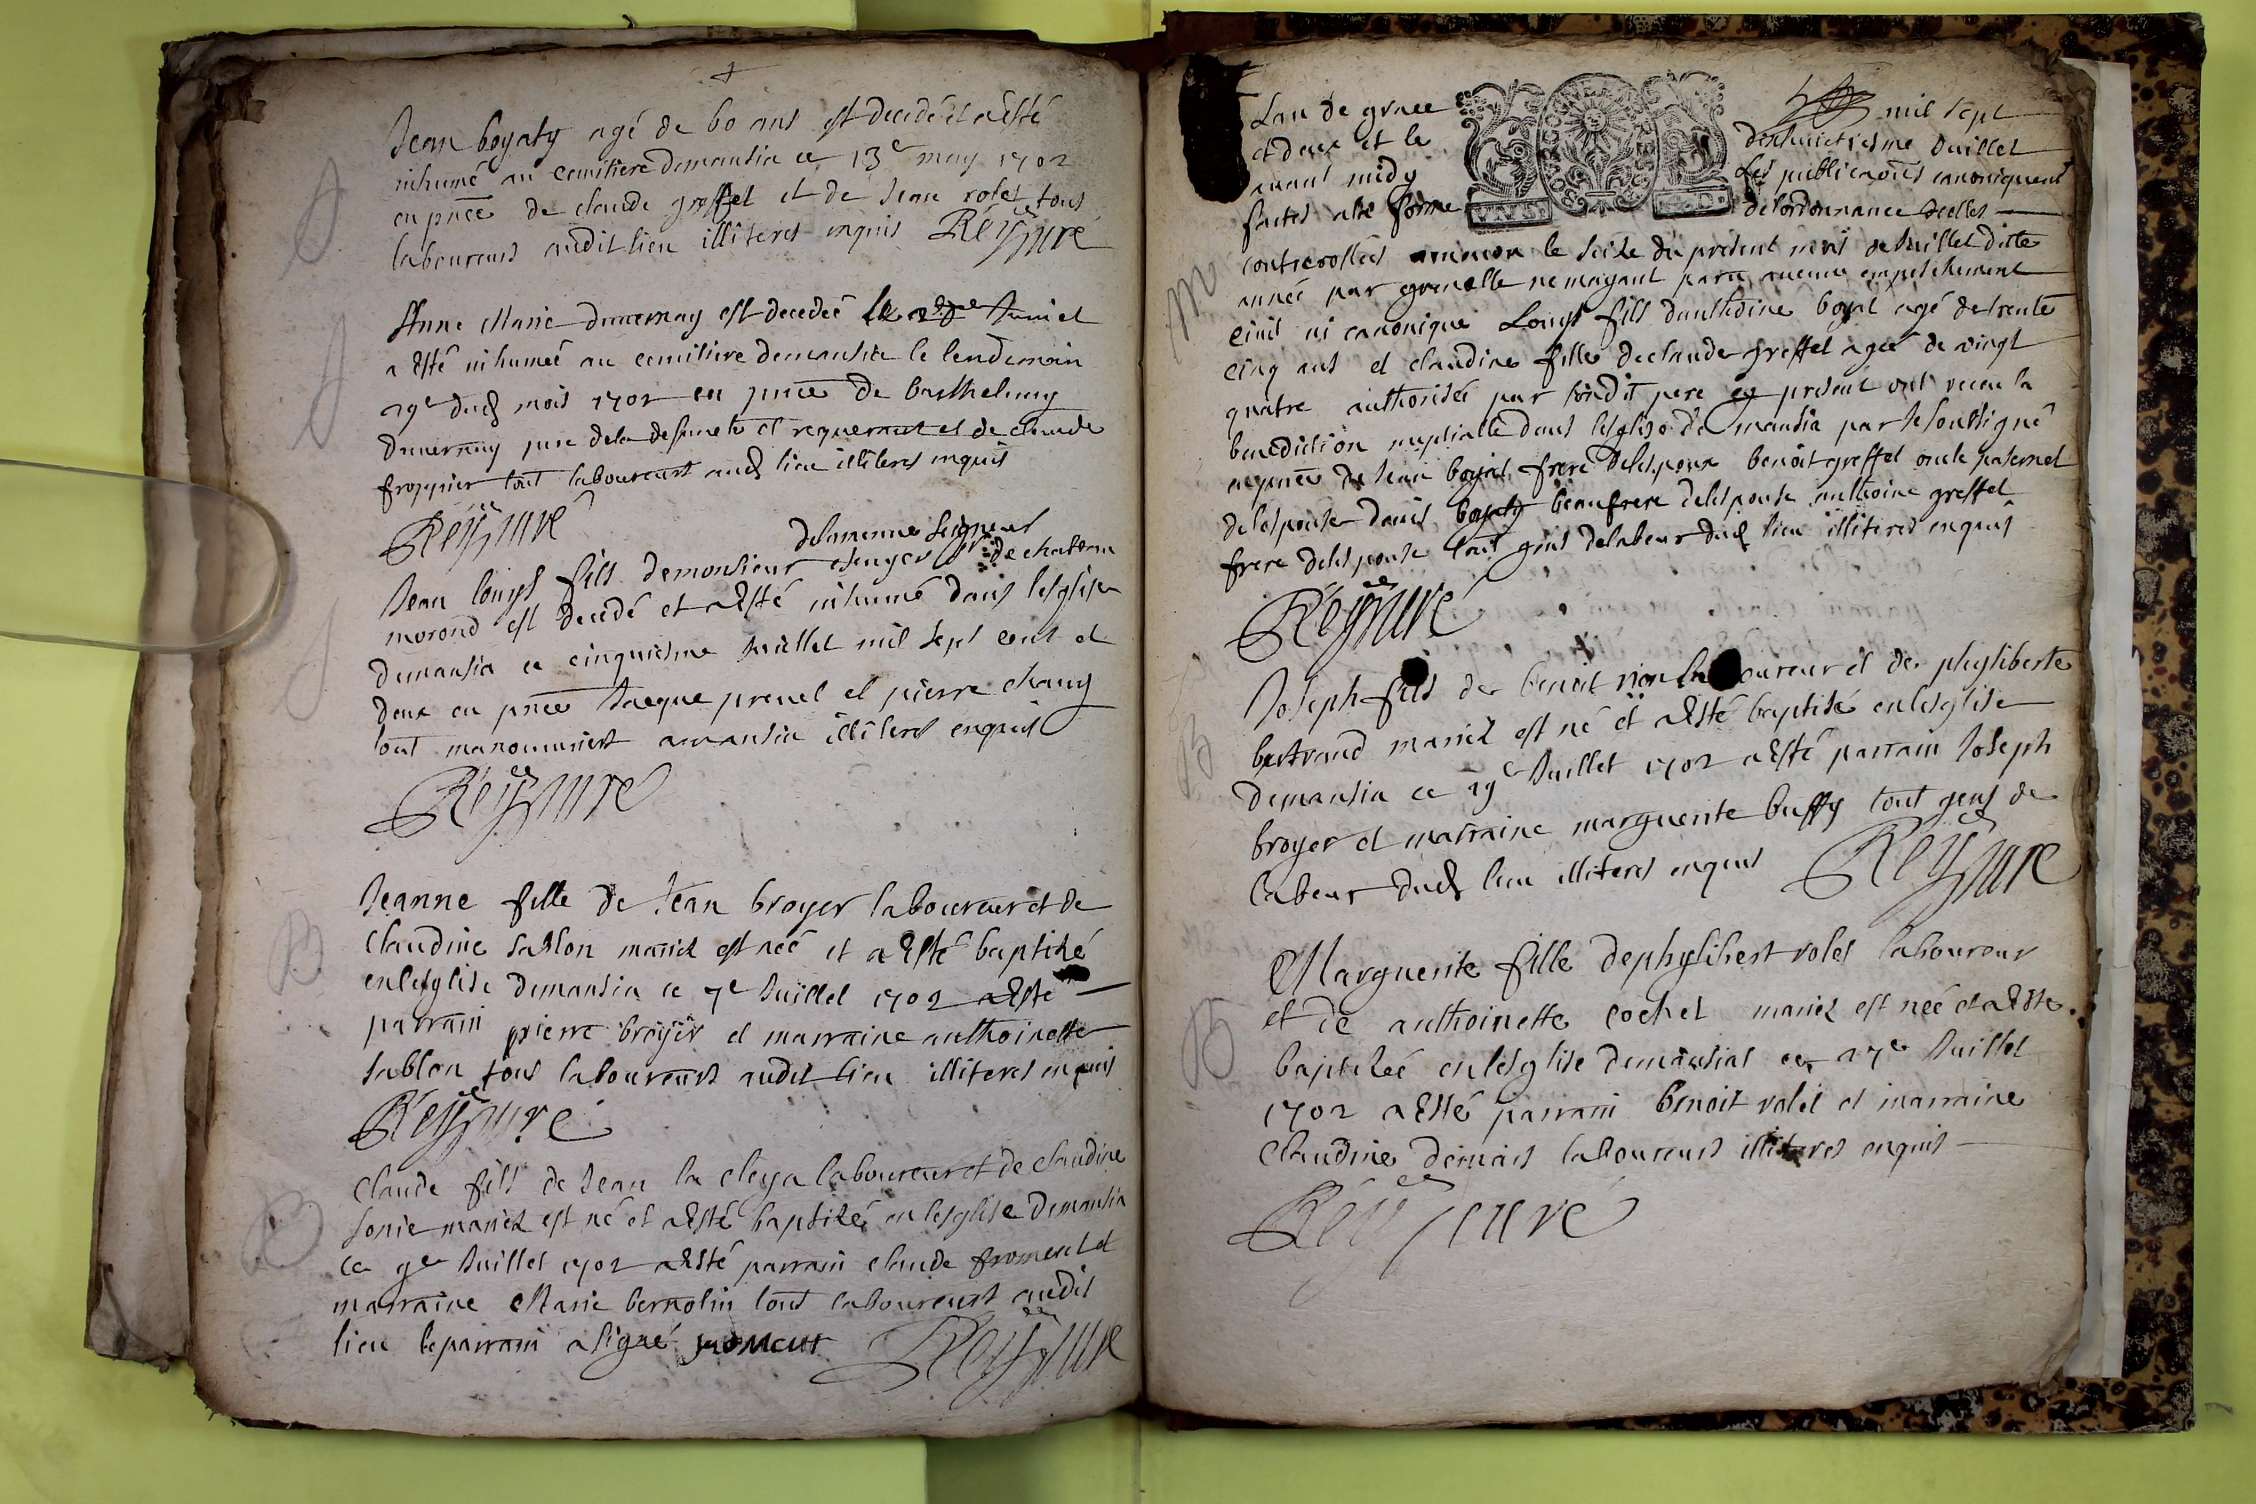 Jean boyaty agé de 60 ans est decedé et a esté
inhumé au cemitiere demansia ce 13e may 1702
en pñce de claude greffet et de Jean rolet tous
laboureurs audit lieu illiteres enquis Rey Jure
Anne Marie duvernay est decedeé le Juin et
a esté inhumeé au cemitiere demansia le lendemain
29e dud mois 1702 en pñce de barthelemy
duvernay pere dela defuncte et requerant et de claude
frozpier tout laboureurs aud lieu illiteres enquis
Rey Jure
delamenue seigneur
Jean louys fils demonsieur de chateau
morond est decedé et a esté inhumé dans lesglise
demansia ce cinquiesme Juillet mil sept cent et
deux en pñce Jacque prevel et pierre chany
tout manouuriers amansia illiteres enquis
Rey Jure
Jeanne fille de Jean broyer laboureur et de
Claudine sablon mariez est neé et a esté baptizé
enlesglise demansia ce 7e Juillet 1702 a este
parrain pierre broyer et marraine anthoinette
sablon tous laboureurs audit lieu illiteres enquis
Rey Jure
Claude fils de Jean la cleya laboureur et de claudine
sonie mariez est né et a esté baptizé en lesglise demansia
ce 9e Juillet 1702 a esté parrain claude froment et
marraine Marie bernolin tout laboureurs audit
lieu le parrain a signé froment Rey Jure
Lan de grace mil sept
et deux et le dixhuictiesme Juillet
auant midy Les publicaoñs canoniquem̃t
faites a la forme delordonnance Icelles
controollées amacon le seize du present mois de Juillet dicte
année par grenelle nemayant paru aucun empeschement
Ciuil ni canonique Louys fils danthoine boyat agé detrente
cinq ans et claudine fille declaude greffet ageé de vingt
quatre authoriseé par sondit pere cy present ont receu la
benediction nuptialle dans lesglise de mansia par le soussigné
enpñce de Jean boyat frere delespoux benoit greffet oncle paternel
delespouse denis boyaty beaufrere delespouse anthoine greffet
frere delespouse tout gens delabeur dud lieu illiteres enquis
Rey Jure
Joseph fils de benoit laboureur et de phyliberte
bertrand mariez est né et a esté baptisé enlesglise
demansia ce 19e Juillet 1702 a esté parrain Joseph
broyer et marraine marguerite buffy tout gens de
labeur dud lieu illiteres enquis Rey Jure
Marguerite fille dephylibert rolet laboureur
et de anthoinette cochet mariez est neé et a este
baptizeé enlesglise demansiat ce 27e Juillet
1702 a esté parrain benoit rolet et marraine
Claudine denais laboureurs illiteres enquis
Rey Jure